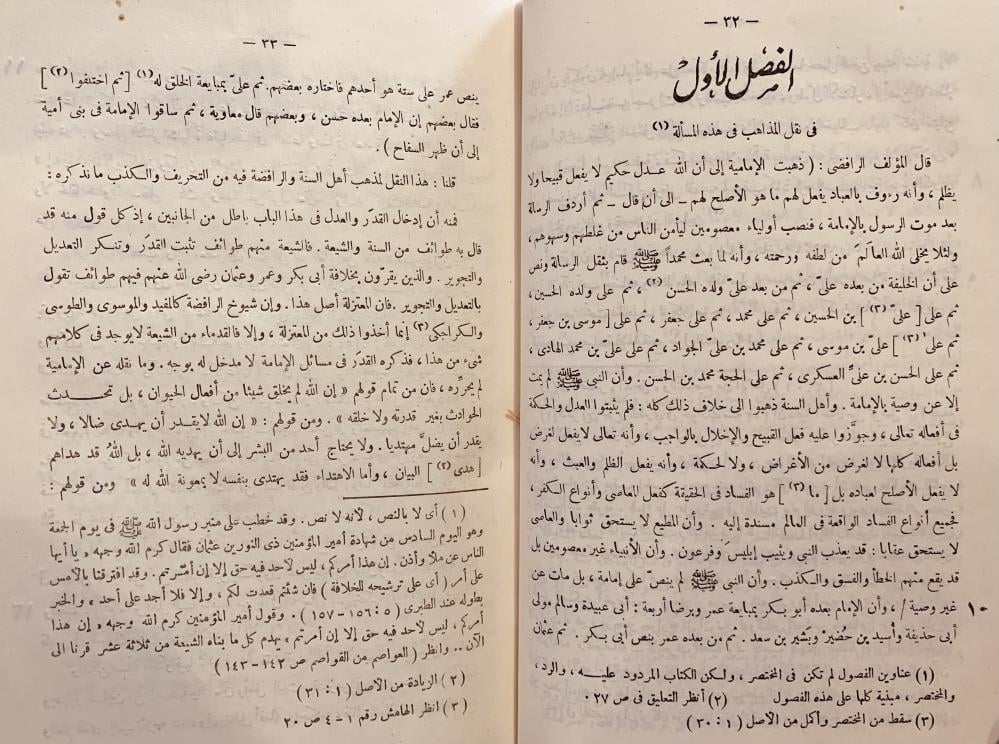 — ٣٢ —
الفصل الأول
فى نقل المذاهب فى هذه المسألة (١)
قال المؤلف الرافضى : ( ذهبت الإمامية إلى أن الله عدل حكيم لا يفعل قبيحا ولا
يظلم ، وأنه رءوف بالعباد يفعل لهم ما هو الأصلح لهم – الى أن قال – ثم أردف الرسالة
بعد موت الرسول بالإمامة ، فنصب أولياء معصومين ليأمن الناس من غلطهم وسهوهم ،
ولئلا يخلى الله العالَمَ من لطفه ورحمته ، وأنه لما بعث محمداً ﷺ قام بثقل الرسالة ونص
على أن الخليفة من بعده علىّ ، ثم من بعد علىّ ولده الحسن (٢) ، ثم على ولده الحسين ،
ثم على [ علىّ (٣) ] بن الحسين ، ثم على محمد ، ثم على جعفر ، ثم على [ موسى بن جعفر ،
ثم على (٣) ] علىّ بن موسى ، ثم على محمد بن علىّ الجواد ، ثم على علىّ بن محمد الهادى ،
ثم على الحسن بن علىّ العسكرى ، ثم على الحجة محمد بن الحسن . وأن النبى ﷺ لم يمت
إلا عن وصية بالإمامة . وأهل السنة ذهبوا الى خلاف ذلك كله : فلم يثبتوا العدل والحكمة
فى أفعاله تعالى ، وجوّزوا عليه فعل القبيح والإخلال بالواجب ، وأنه تعالى لا يفعل لغرض
بل أفعاله كلها لا لغرض من الأغراض ، ولا لحكمة ، وأنه يفعل الظلم والعبث ، وأنه
لا يفعل الأصلح لعباده بل [ ما (٣) ] هو الفساد فى الحقيقة كفعل المعاصى وأنواع الكفر ،
فجميع أنواع الفساد الواقعة فى العالم مسندة إليه . وأن المطيع لا يستحق ثوابا والعاصى
لا يستحق عقابا : قد يعذب النبى ويثيب إبليسَ وفرعون . وأن الأنبياء غير معصومين بل
قد يقع منهم الخطأ والفسق والكذب . وأن النبى ﷺ لم ينصّ على إمامة ، بل مات عن
غير وصية / ، وأن الإمام بعده أبو بكر بمبايعة عمر وبرضا أربعة : أبى عبيدة وسالم مولى
١٠
أبى حذيفة وأسيد بن حُضَير وبَشير بن سعد . ثم من بعده عمر بنص أبى بكر . ثم عثمان
(١) عناوين الفصول لم تكن فى المختصر ، ولكن الكتاب المردود عليه ، والرد ،
والمختصر ، مبنية كلها على هذه الفصول (٢) أنظر التعليق فى ص ٢٧ .
(٣) سقط من المختصر وأكل من الأصل ( ١ : ٣٠ )
— ٣٣ —
ينص عمر على ستة هو أحدهم فاختاره بعضهم. ثم علىّ بمبايعة الخلق له (١) [ ثم اختلفوا (٢) ]
فقال بعضهم إن الإمام بعده حسن ، وبعضهم قال معاوية ، ثم ساقوا الإمامة فى بنى أمية
إلى أن ظهر السفاح ) .
قلنا : هذا النقل لمذهب أهل السنة والرافضة فيه من التحريف والكذب ما نذكره :
فمنه أن إدخال القدَر والعدل فى هذا الباب باطل من الجانبين ، إذ كل قول منه قد
قال به طوائف من السنة والشيعة . فالشيعة منهم طوائف تثبت القدَر وتنكر التعديل
والتجوير . والذين يقرّون بخلافة أبى بكر وعمر وعثمان رضى الله عنهم فيهم طوائف تقول
بالتعديل والتجوير . فان المعتزلة أصل هذا . وإن شيوخ الرافضة كالمفيد والموسوى والطوسى
والكراجكى (٣) إنما أخذوا ذلك من المعتزلة ، وإلا فالقدماء من الشيعة لا يوجد فى كلامهم
شىء من هذا ، فذكره القدَر فى مسائل الإمامة لا مدخل له بوجه . وما نقله عن الإمامية
لم يحرّره ، فان من تمام قولهم « إن الله لم يخلق شيئا من أفعال الحيوان ، بل تحدث
الحوادث بغير قدرته ولا خلقه » . ومن قولهم : « إن الله لا يقدر أن يهدى ضالا ، ولا
يقدر أن يضلّ مهتديا . ولا يحتاج أحد من البشر إلى أن يهديه الله ، بل اللهُ قد هداهم
[ هدى (٢) ] البيان ، وأما الاهتداء فقد يهتدى بنفسه لا بمعونة الله له » ومن قولهم :
( ١ ) أى لا بالنص ، لأنه لا نص . وقد خطب على منبر رسول الله ﷺ فى يوم الجمعة
وهو اليوم السادس من شهادة أمير المؤمنين ذى النورين عثمان فقال كرم الله وجهه « يا أيها
الناس عن ملأ وأذن . إن هذا أمركم ، ليس لأحد فيه حق إلا إن أمّرتم . وقد افترقنا بالأمس
على أمر ( أى على ترشيحه للخلافة ) فان شئتم قعدت لكم ، وإلا فلا أجد على أحد » والخبر
بطوله عند الطبرى ( ٥ : ١٥٦ – ١٥٧ ) . وقول أمير المؤمنين كرم الله وجهه « إن هذا
أمركم ، ليس لأحد فيه حق إلا إن أمرتم » يهدم كل ما بناه الشيعة من ثلاثة عشر قرنا الى
الآن .. وانظر ( العواصم من القواصم ص ١٤٢ – ١٤٣ )
( ٢ ) الزيادة من الأصل ( ١ : ٣١ )
( ٣ ) انظر الهامش رقم ١ – ٤ ص ٢٠